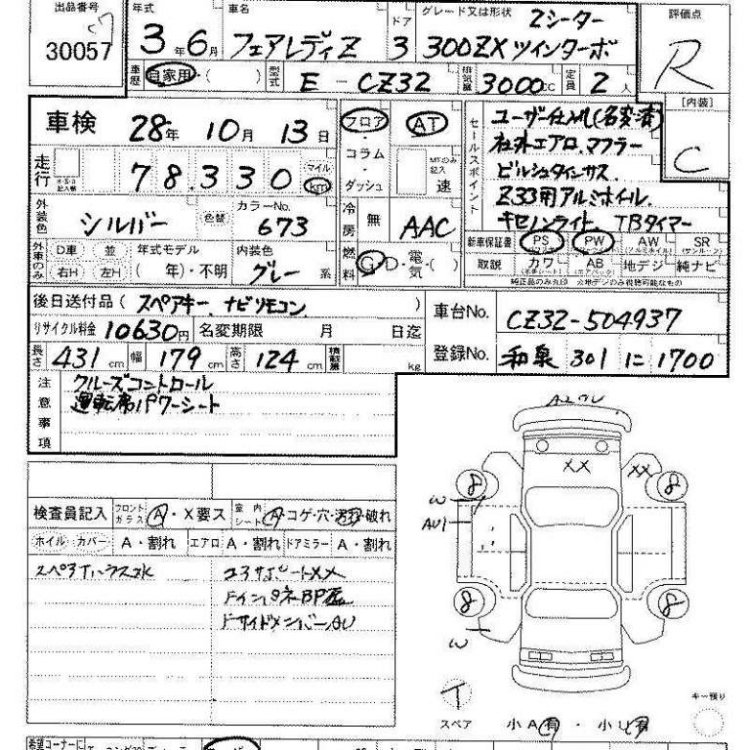 出品番号
30057
年式 3年 6月
車名 フェアレディZ
ドア 3
グレード又は形状 2シーター
300ZX ツインターボ
評価点
R
車歴 自家用・( )
型式 E-CZ32
排気量 3000cc
定員 2人
[内装]
C
車検 28年 10月 13日
走行 78.330 マイル km
外装色 シルバー 色替
カラーNo. 673
外車のみ D車 並 右H 左H
年式モデル ( 年)・不明
内装色 グレー系
フロア・コラム・ダッシュ
AT
MTのみ記入 速
冷房 無 AAC
燃料 G・D・電気・( )
セールスポイント
ユーザー仕入れ(名変済)
社外エアロ.マフラー
ビルシュタインサス.
Z33用アルミホイル.
キセノンライト TBタイマー
新車保証書 PS PW AW SR
取説 カワ AB 地デジ 純ナビ
純正品のみ丸印
後日送付品 ( スペアキー.ナビリモコン )
リサイクル料金 10630円 名変期限 月 日迄
長さ 431cm 幅 179cm 高さ 124cm 積載量 kg
車台No. CZ32-504937
登録No. 和泉 301 に 1700
注意事項
クルーズコントロール
運転席パワーシート
検査員記入 フロントガラス A・X要ス 室内シート A コゲ・穴・汚れ・破れ
ホイル カバー A・割れ エアロ A・割れ ドアミラー A・割れ
コアサポートXX
XX
XX
W
AU1
W
8
8
8
8
スペア
小A有・小U有
キー預り
希望コーナーに